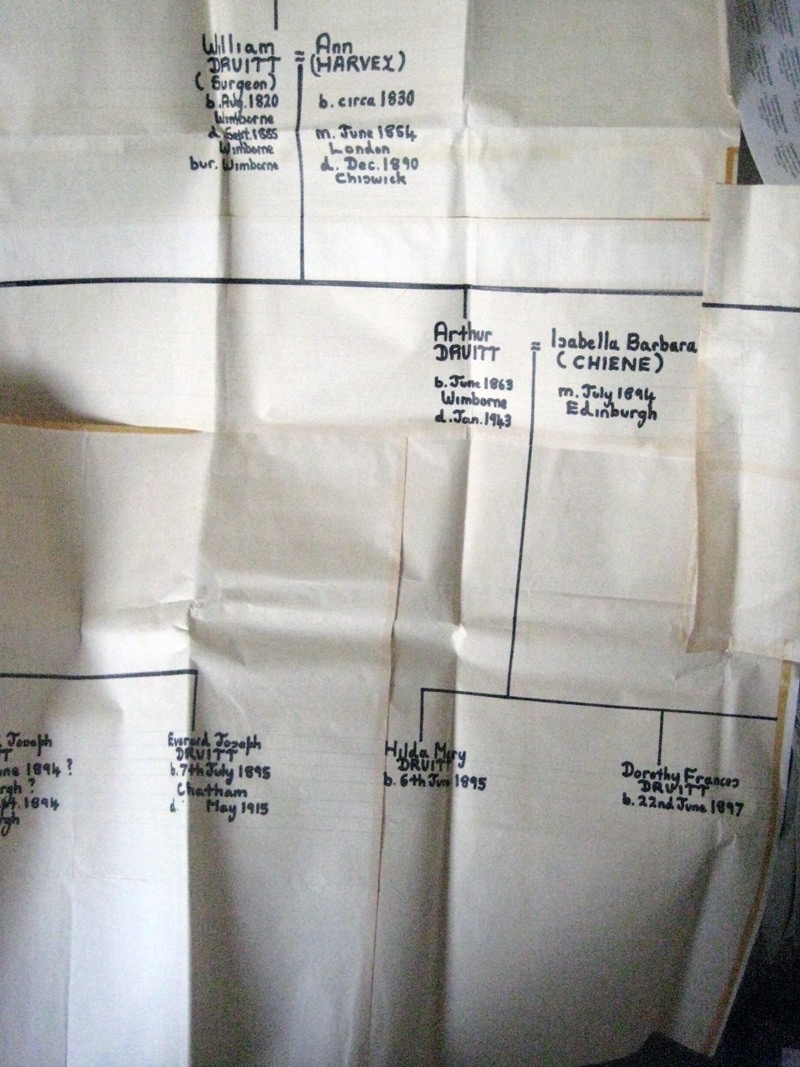 William
DRUITT
(Surgeon)
b. Aug. 1820
Wimborne
d. Sept. 1885
Wimborne
bur. Wimborne
=
Ann
(HARVEY)
b. circa 1830
m. June 1854
London
d. Dec. 1890
Chiswick
Arthur
DRUITT
b. June 1863
Wimborne
d. Jan. 1943
=
Isabella Barbara
(CHIENE)
m. July 1894
Edinburgh
Joseph
TT
une 1894 ?
rgh ?
pt. 1894
rgh
Everard Joseph
DRUITT
b. 7th July 1895
Chatham
d. May 1915
Hilda Mary
DRUITT
b. 6th June 1895
Dorothy Frances
DRUITT
b. 22nd June 1897